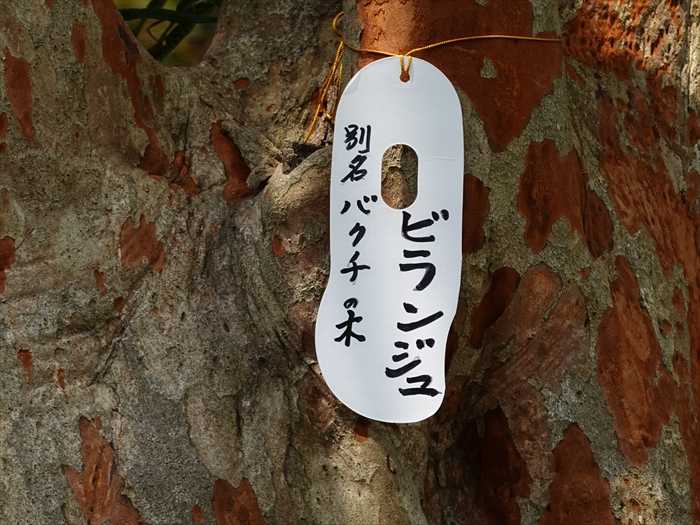 ビランジュ
別名 バクチの木